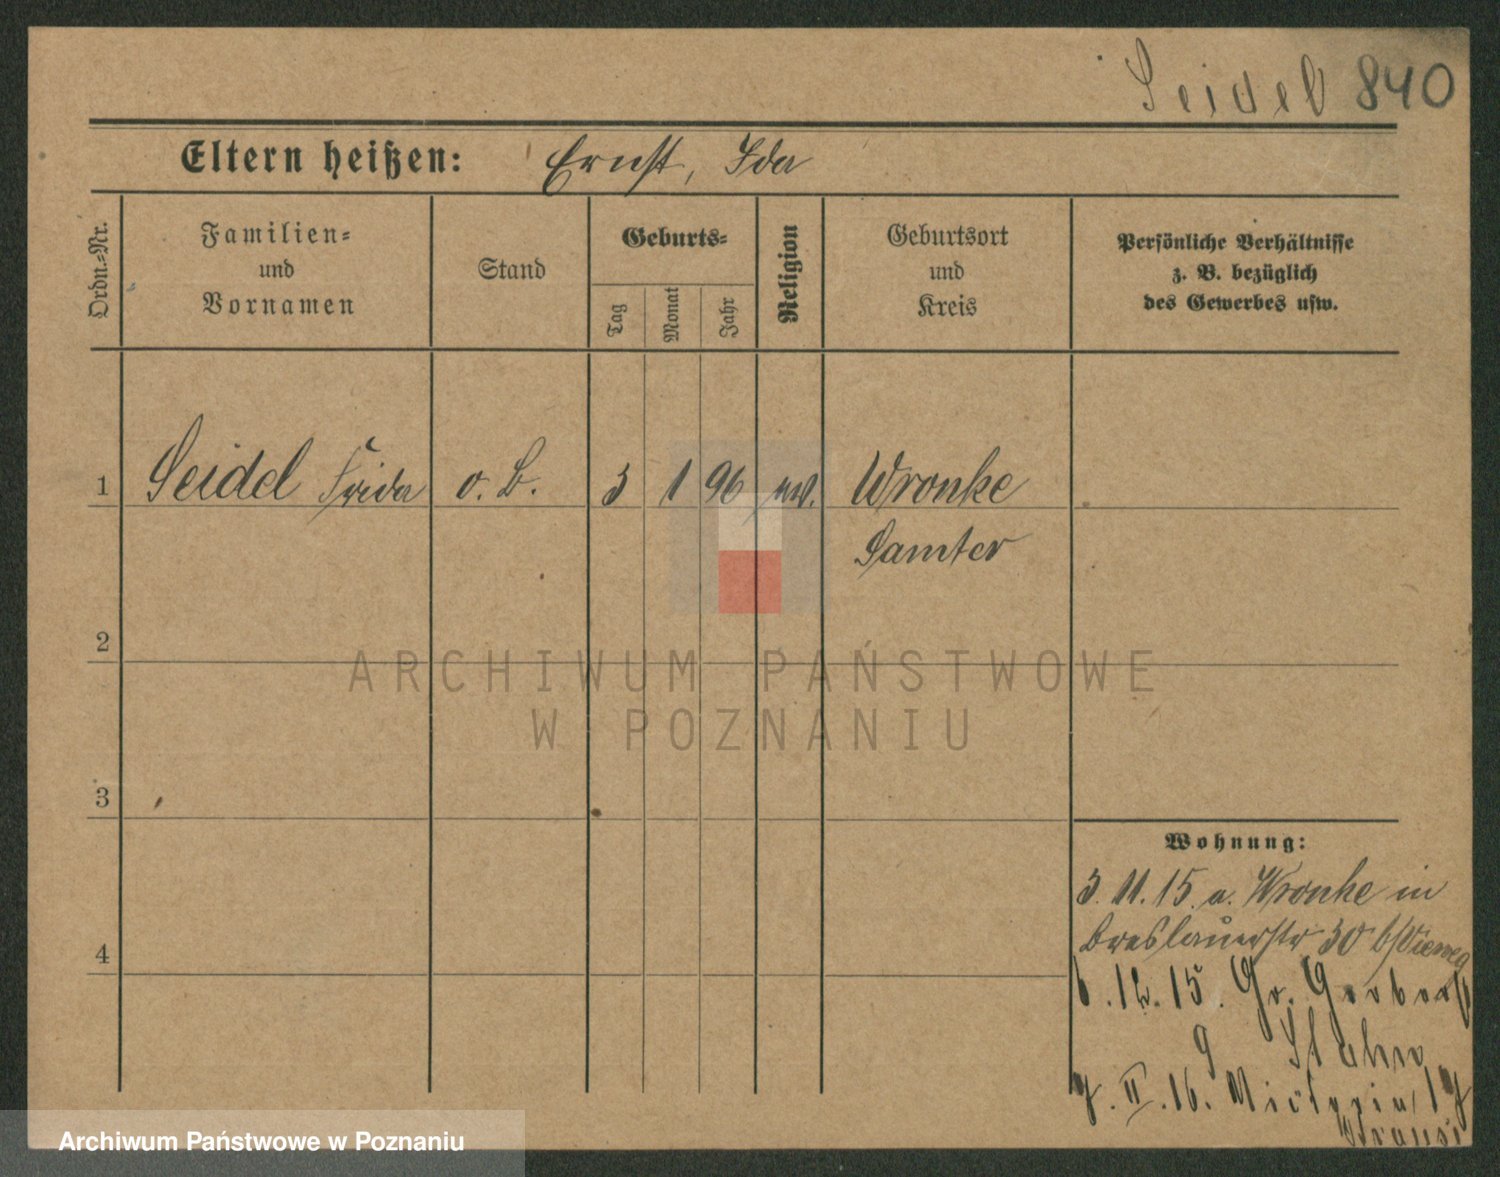 Seidel 840
Eltern heißen: Ernst, Ida
Ordn.-Nr.
Familien-
und
Vornamen
Stand
Geburts-
Tag
Monat
Jahr
Religion
Geburtsort
und
Kreis
Persönliche Verhältnisse
z. B. bezüglich
des Gewerbes usw.
1 Seidel Frida o. B. 3 1 96 ew. Wronke
Samter
2
3
4
Wohnung:
3. 11. 15. a. Wronke in
Breslauerstr 30 b/Vieweg
6. 12. 15. Gr. Gerberst
9
7. II. 16. Victoria 17
Krause
ARCHIWUM PAŃSTWOWE
W POZNANIU
Archiwum Państwowe w Poznaniu